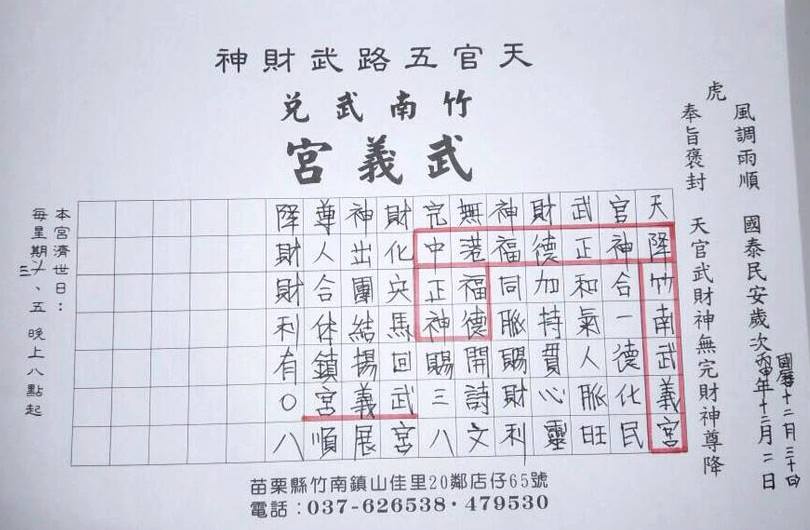 天官五路武財神
竹南武兌
武義宮
虎
風調雨順 國泰民安歲次 年十二月二日
國曆十二月三十日
奉旨褒封 天官武財神無完財神尊降
天降竹南武義宮
官神合一德化民
武正和氣人脈旺
財德加持貫心靈
神福同脈賜財利
無港福德開詩文
完中正神賜三八
財化央馬回武宮
神出團結揚義展
尊人合体鎮宮順
降財財利有○八
本宮濟世日：
每星期三、五 晚上八點起
苗栗縣竹南鎮山佳里20鄰店仔65號
電話：037-626538・479530